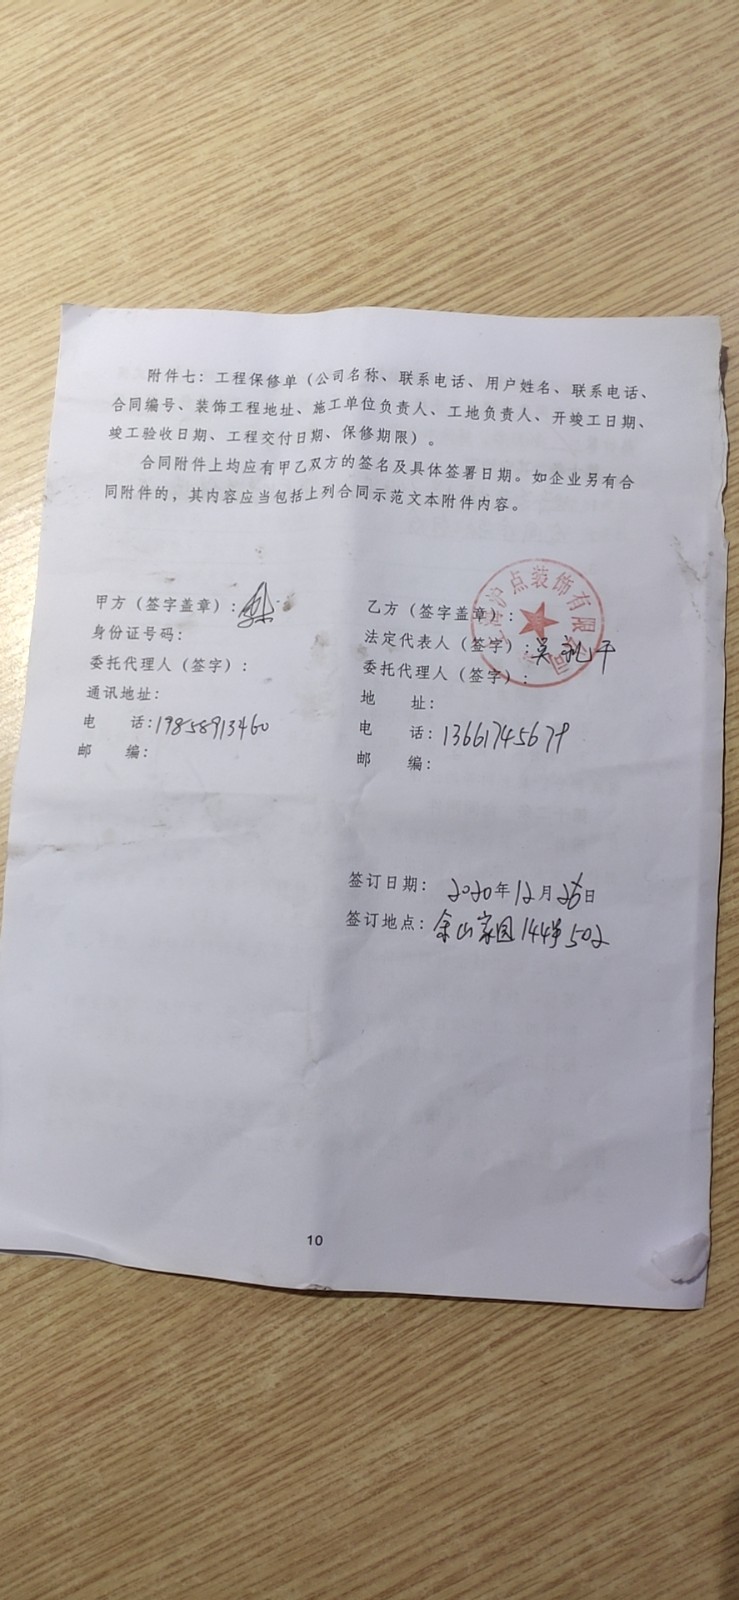 附件七：工程保修单（公司名称、联系电话、用户姓名、联系电话、
合同编号、装饰工程地址、施工单位负责人、工地负责人、开竣工日期、
竣工验收日期、工程交付日期、保修期限）。
合同附件上均应有甲乙双方的签名及具体签署日期。如企业另有合
同附件的，其内容应当包括上列合同示范文本附件内容。
甲方（签字盖章）：
身份证号码：
委托代理人（签字）：
通讯地址：
电 话：19858913460
邮 编：
乙方（签字盖章）：
法定代表人（签字）：吴礼平
委托代理人（签字）：
地 址：
电 话：13661745679
邮 编：
沪点装饰有限公司
签订日期： 2020年12月26日
签订地点：佘山家园144号502
10